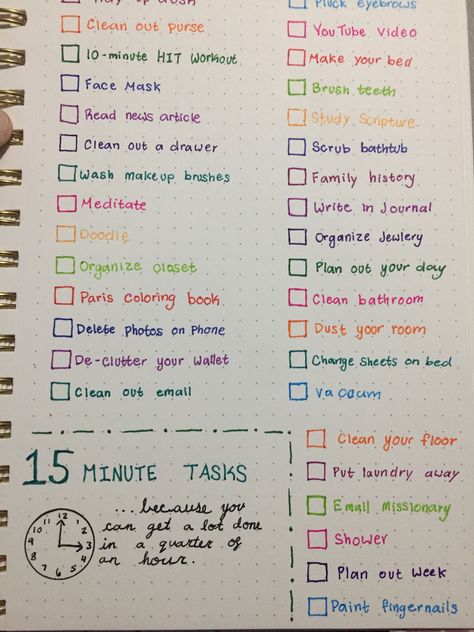 Clean out purse
10-minute HIT workout
Face Mask
Read news article
Clean out a drawer
Wash makeup brushes
Meditate
Doodle
Organize closet
Paris coloring book
Delete photos on phone
De-clutter your wallet
Clean out email
Pluck eyebrows
YouTube video
Make your bed
Brush teeth
Study Scripture
Scrub bathtub
Family history
Write in Journal
Organize Jewlery
Plan out your day
Clean bathroom
Dust your room
Change sheets on bed
Vacuum
Clean your floor
Put laundry away
Email missionary
Shower
Plan out week
Paint fingernails
15 MINUTE TASKS
...because you
can get a lot done
in a quarter of
an hour.
12
1
2
3
4
5
6
7
8
9
10
11